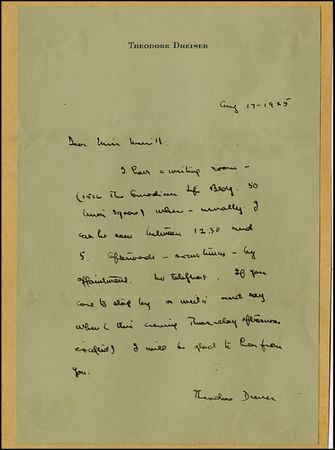 THEODORE DREISER
Aug 17-1925
Dear Miss
I have a writing room -
(1516 The Guardian Life Bldg. 50
Union Square) where - usually I
can be seen between 12:30 and
5. Afterwards - sometimes - by
appointment. No telephone. If you
care to stop by or write and say
when (this coming Thursday afternoon
excepted) I will be glad to hear from
you.
Theodore Dreiser